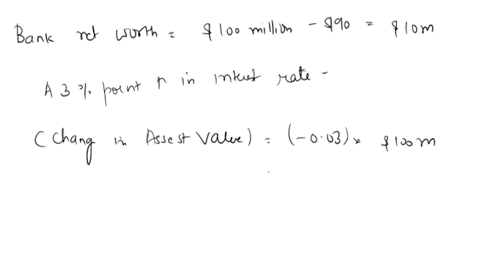 Bank net worth = $100 million - $90 = $10m
A 3% point ↑ in interest rate -
(Chang in Assest Value) = (-0.03) × $100m